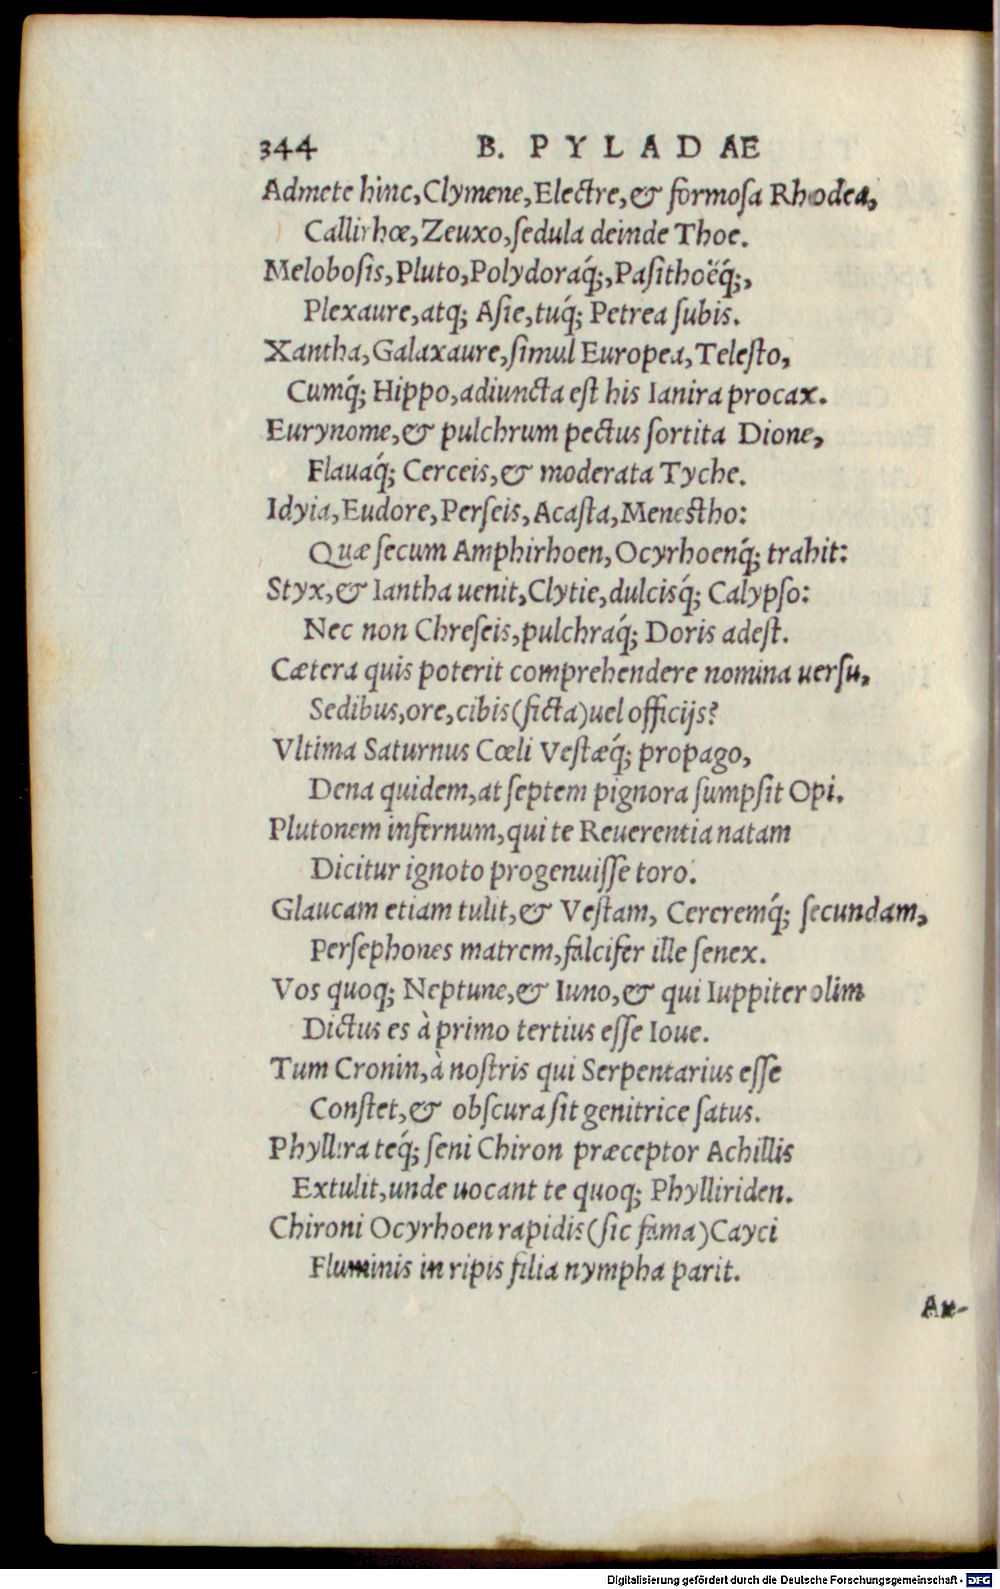 344 B. PYLADAE
Admete hinc, Clymene, Electre, & formoſa Rhodea,
Callirhœ, Zeuxo, ſedula deinde Thoe.
Meloboſis, Pluto, Polydoraq́;, Paſithoëq́;,
Plexaure, atq; Aſie, tuq́; Petrea ſubis.
Xantha, Galaxaure, ſimul Europea, Teleſto,
Cumq́; Hippo, adiuncta eſt his Ianira procax.
Eurynome, & pulchrum pectus ſortita Dione,
Flauaq́; Cerceis, & moderata Tyche.
Idyia, Eudore, Perſeis, Acaſta, Menestho:
Quæ ſecum Amphirhoen, Ocyrhoenq́; trahit:
Styx, & Iantha uenit, Clytie, dulcisq́; Calypſo:
Nec non Chreſeis, pulchraq́; Doris adeſt.
Cætera quis poterit comprehendere nomina uerſu,
Sedibus, ore, cibis (ficta) uel officijs?
Vltima Saturnus Cœli Veſtæq́; propago,
Dena quidem, at ſeptem pignora ſumpſit Opi.
Plutonem infernum, qui te Reuerentia natam
Dicitur ignoto progenuiſſe toro.
Glaucam etiam tulit, & Veſtam, Cereremq́; ſecundam,
Perſephones matrem, falcifer ille ſenex.
Vos quoq; Neptune, & Iuno, & qui Iuppiter olim
Dictus es à primo tertius eſſe Ioue.
Tum Cronin, à noſtris qui Serpentarius eſſe
Conſtet, & obſcura ſit genitrice ſatus.
Phyllira teq́; ſeni Chiron præceptor Achillis
Extulit, unde uocant te quoq; Phylliriden.
Chironi Ocyrhoen rapidis (ſic fama) Cayci
Fluminis in ripis filia nympha parit.
Au-
Digitalisierung gefördert durch die Deutsche Forschungsgemeinschaft - DFG